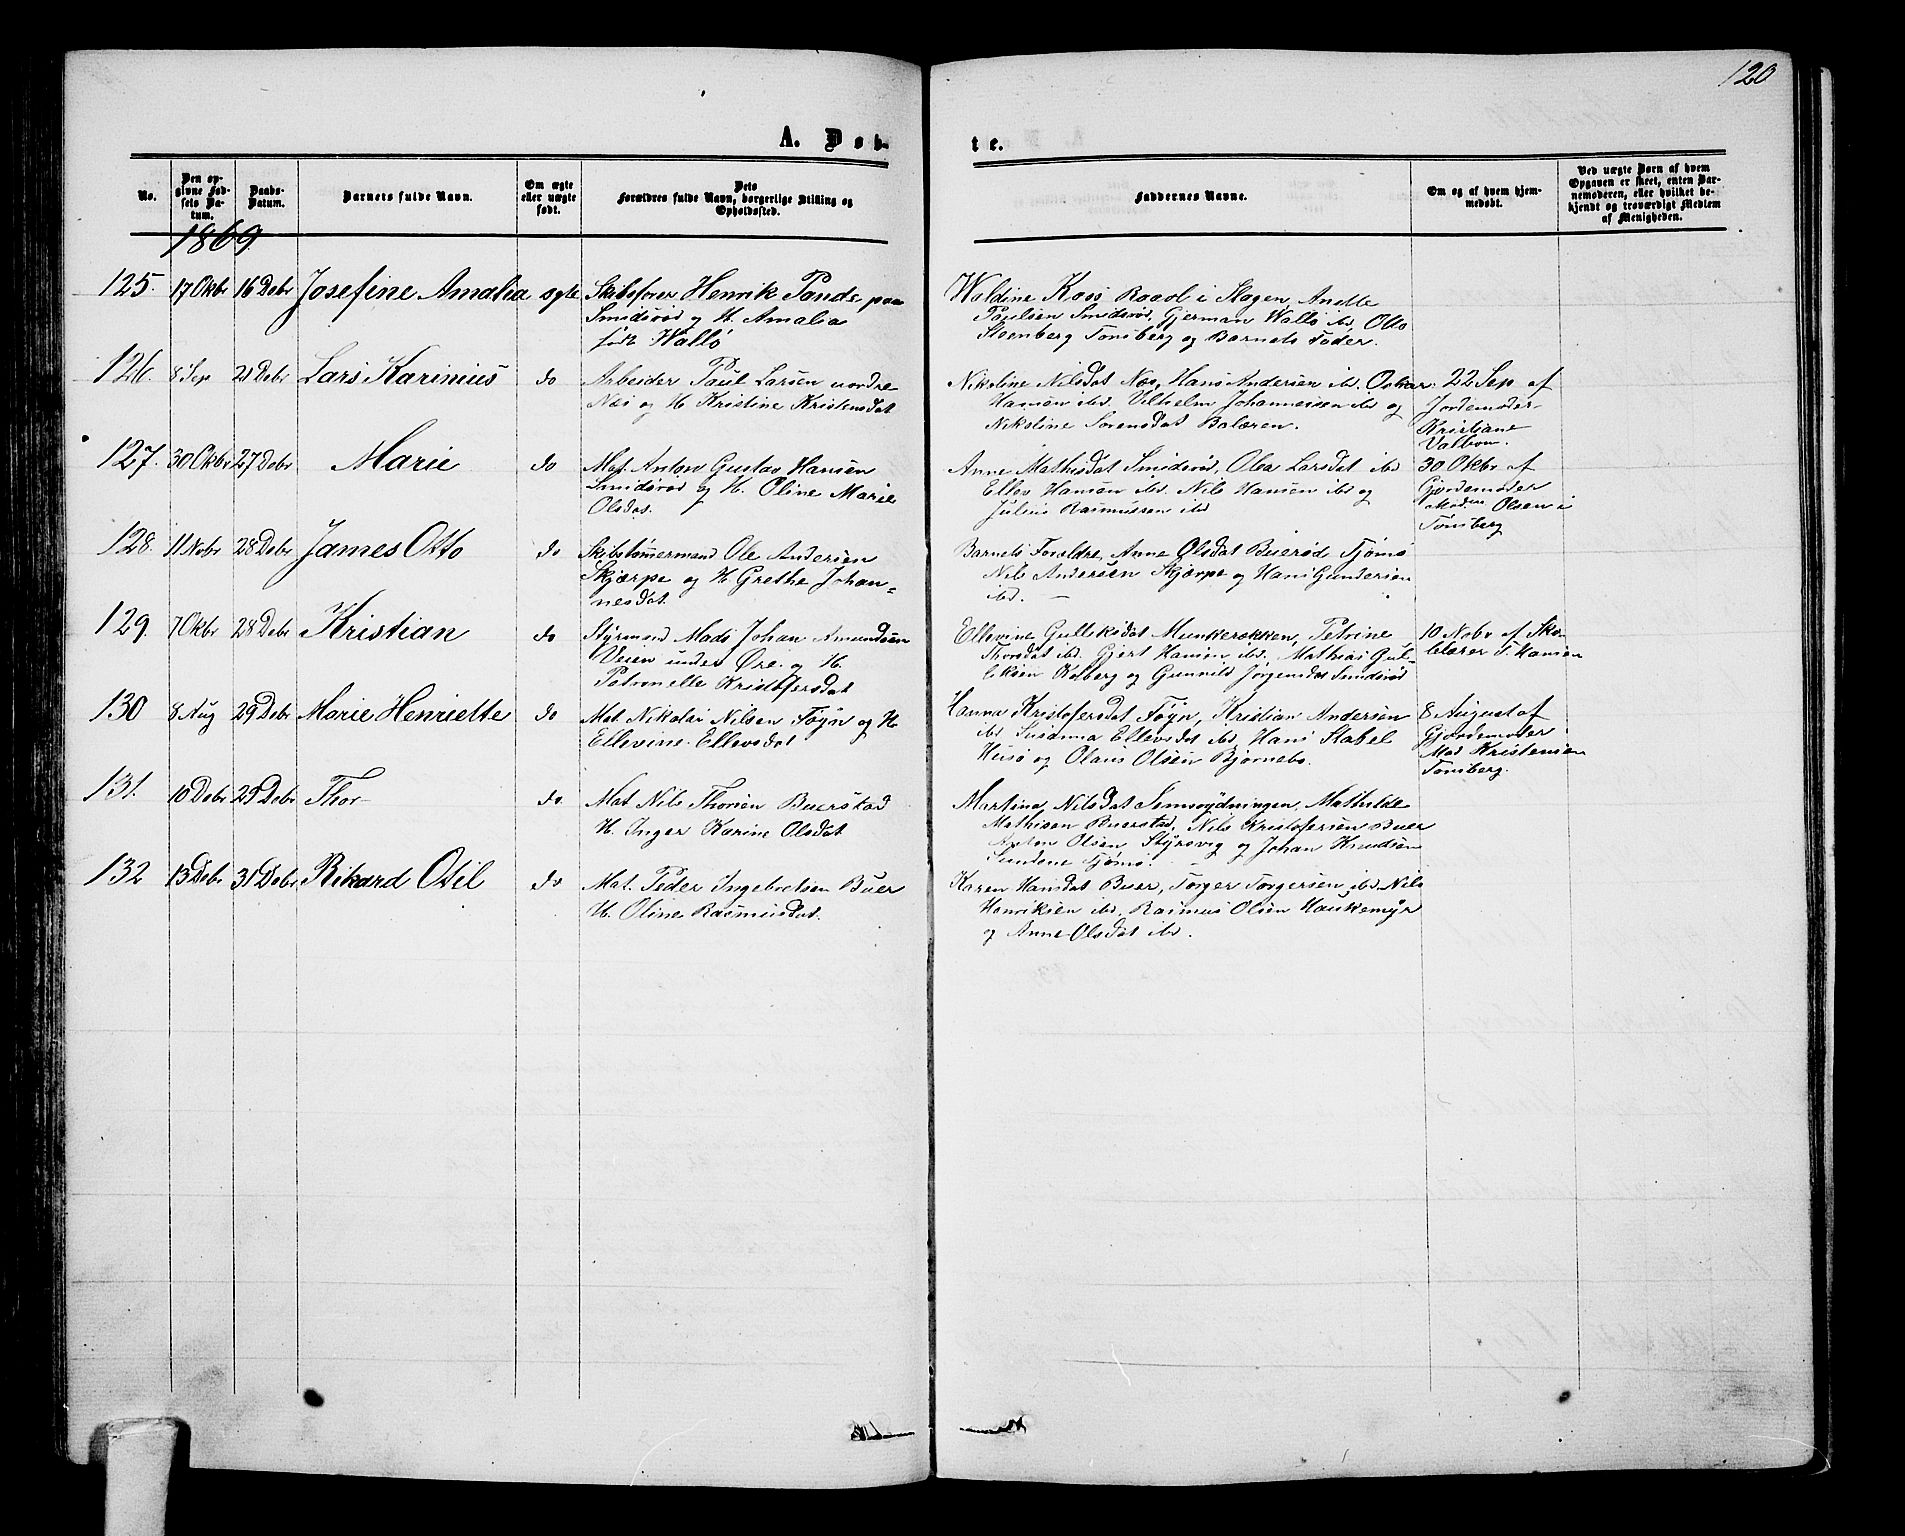 120
A. Døb-
te.
No.
Den op-
givne Fød-
sels Da-
tum.
Daabs-
Datum.
Barnets fulde Navn.
Om ægte
eller uægte
født.
Dets
Forældres fulde Navn, borgerlige Stilling og
Opholdssted.
Faddernes Navne.
Om og af hvem hjem-
medøbt.
Ved uægte Børn af hvem
Opgaven er skeet, enten Bar-
nemoderen, eller hvilket be-
kjendt og troværdigt Medlem
af Menigheden.
1869
125. 17 Okbr 16 Debr Josefine Amalia ægte
Skibsfører Henrik Pande paa
Smidsrød og H. Amalia
født Wallø
Waldine Koss Raaol i Slagen, Anette
Paulsen Smidsrød, Gjerman Wallø ibd, Otto
Steenberg Tønsberg og Barnets Fader.
126. 8 Sep 21 Debr Lars Karinius do
Arbeider Paul Larsen nordre
Næs og H. Kristine Kristensdat
Nikoline Nilsdat Næs, Hans Andersen ibd. Oskar
Hansen ibd. Vilhelm Johannessen ibd og
Nikoline Sørensdat Bolæren.
22 Sep af
Jordemoder
Kristiane
Valbom.
127. 30 Okbr 27 Debr Marie do
Mat. Anton Gustav Hansen
Smidsrød og H. Oline Marie
Olsdat.
Anne Mathisdat Smidsrød, Olea Larsdat ibd
Ellev Hansen ibd. Nils Hansen ibd og
Julius Rasmussen ibd
30 Okbr af
Gjordemoder
Mad. Olsen i
Tønsberg
128. 11 Nobr 28 Debr James Otto do
Skibstømmermand Ole Andersen
Skjærpe og H. Grethe Johan=
nesdat.
Barnets Forældre, Anne Olsdat Buerød Tjømø
Nils Andersen Skjærpe og Hans Gundersen
ibd. —
129. 7 Okbr 28 Debr Kristian do
Styrmand Mads Johan Amundsen
Veien under Øre og H.
Petronelle Kristofersdat
Ellevine Gulliksdat Munkerekken, Petrine
Thorsdat ibd. Gjert Hansen ibd, Mathias Gul-
liksen Kolberg og Gunnild Jørgensdat Smidsrød
10 Nobr af Sko-
lelærer T. Hansen
130 8 Aug 29 Debr Marie Henriette do
Mat. Nikolai Nilsen Føyn og H.
Ellevine Ellevsdat
Hanna Kristofersdat Føyn, Kristian Andersen
ibd Susanna Ellevsdat ibd, Hans Stabel
Husø og Olaus Olsen Bjørnebo.
8 August af
Gjordemoder
Mad Kristensen
Tønsberg.
131. 10 Debr 29 Debr Thor do.
Mat Nils Thorsen Buerstad
H. Inger Karine Olsdat
Martine Nilsdat Semsrydningen, Mathilde
Mathisen Buerstad, Nils Kristofersen Buer
Anton Olsen Styrsvig og Johan Knudsen
Sundene Tjømø.
132 13 Debr 31 Debr Rikard Otil do
Mat. Peder Ingebretsen Buer
H. Oline Rasmusdat.
Karen Hansdat Buer, Torger Torgersen ibd Nils
Henriksen ibd, Rasmus Olsen Haukemyr
og Anne Olsdat ibd.